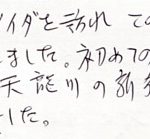 イダを訪れ この
ました。初めての
天龍川の新
した。